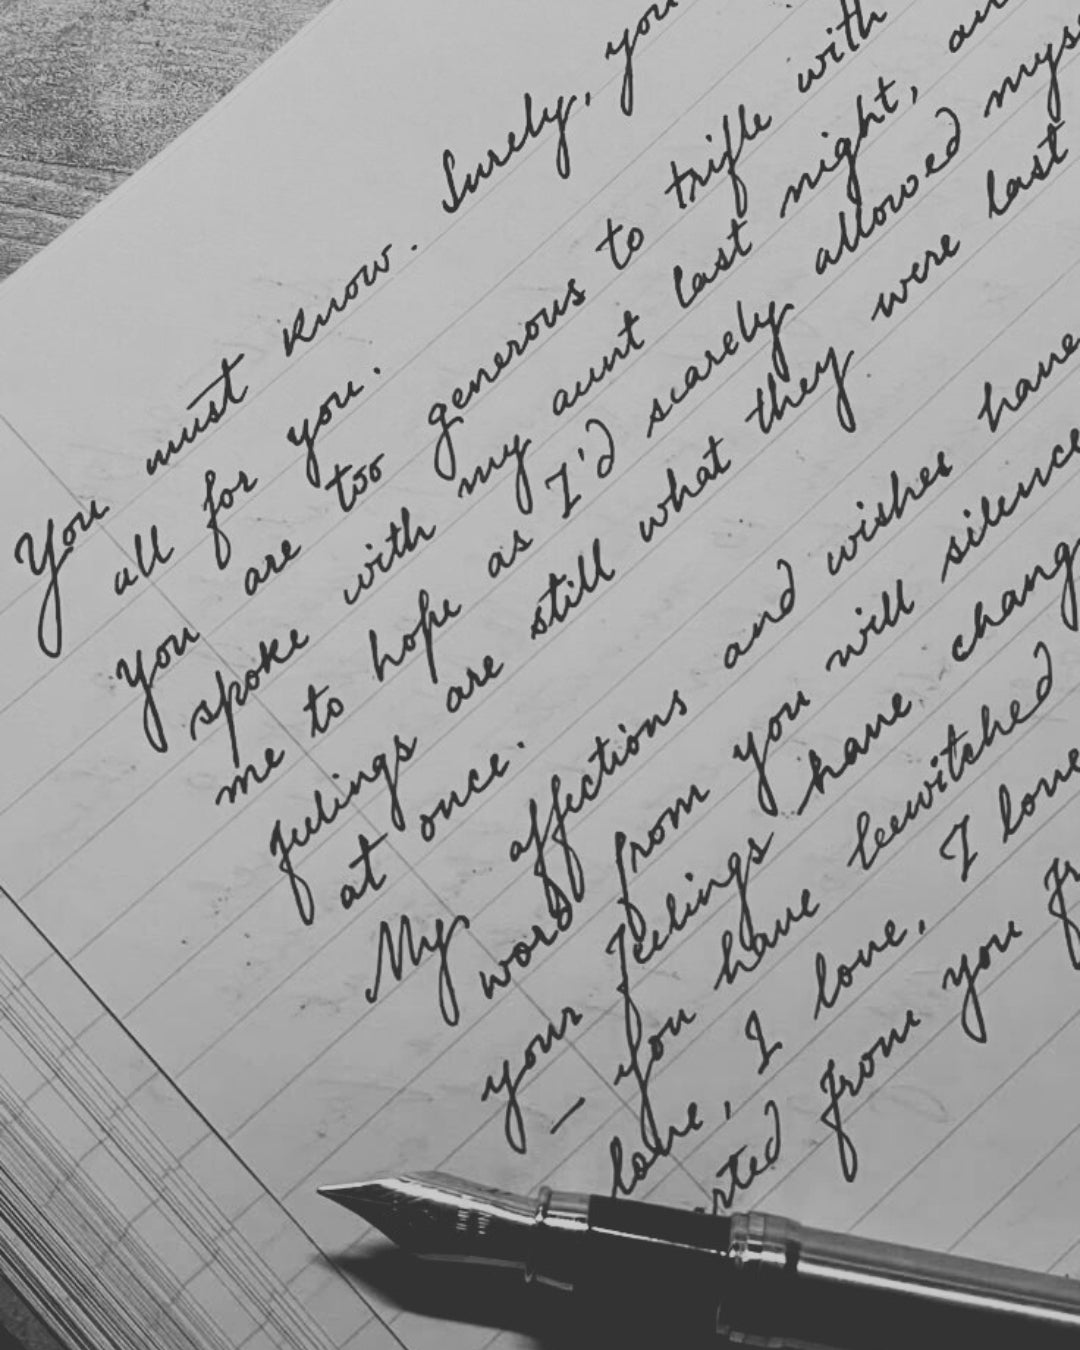 You must know. Surely, you
all for you.
you are too generous to trifle with
spoke with my aunt last night,
me to hope as I'd scarcely allowed
feelings are still what they were last
at once.
My affections and wishes have
word from you will silence
your feelings have
— you have bewitched
love, I love, I love
from you